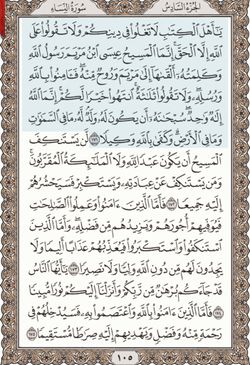 الجُزْءُ السَّادِسُ سُورَةُ النِّسَاءِ
يَٰٓأَهْلَ ٱلْكِتَٰبِ لَا تَغْلُوا۟ فِي دِينِكُمْ وَلَا تَقُولُوا۟ عَلَى
ٱللَّهِ إِلَّا ٱلْحَقَّ إِنَّمَا ٱلْمَسِيحُ عِيسَى ٱبْنُ مَرْيَمَ رَسُولُ ٱللَّهِ
وَكَلِمَتُهُۥٓ أَلْقَىٰهَآ إِلَىٰ مَرْيَمَ وَرُوحٌ مِّنْهُ فَـَٔامِنُوا۟ بِٱللَّهِ
وَرُسُلِهِۦ وَلَا تَقُولُوا۟ ثَلَٰثَةٌ ٱنتَهُوا۟ خَيْرًا لَّكُمْ إِنَّمَا ٱللَّهُ
إِلَٰهٌ وَٰحِدٌ سُبْحَٰنَهُۥٓ أَن يَكُونَ لَهُۥ وَلَدٌ لَّهُۥ مَا فِي ٱلسَّمَٰوَٰتِ
وَمَا فِي ٱلْأَرْضِ وَكَفَىٰ بِٱللَّهِ وَكِيلًا ١٧١ لَّن يَسْتَنكِفَ
ٱلْمَسِيحُ أَن يَكُونَ عَبْدًا لِّلَّهِ وَلَا ٱلْمَلَٰٓئِكَةُ ٱلْمُقَرَّبُونَ
وَمَن يَسْتَنكِفْ عَنْ عِبَادَتِهِۦ وَيَسْتَكْبِرْ فَسَيَحْشُرُهُمْ
إِلَيْهِ جَمِيعًا ١٧٢ فَأَمَّا ٱلَّذِينَ ءَامَنُوا۟ وَعَمِلُوا۟ ٱلصَّٰلِحَٰتِ
فَيُوَفِّيهِمْ أُجُورَهُمْ وَيَزِيدُهُم مِّن فَضْلِهِۦ وَأَمَّا ٱلَّذِينَ
ٱسْتَنكَفُوا۟ وَٱسْتَكْبَرُوا۟ فَيُعَذِّبُهُمْ عَذَابًا أَلِيمًا وَلَا
يَجِدُونَ لَهُم مِّن دُونِ ٱللَّهِ وَلِيًّا وَلَا نَصِيرًا ١٧٣ يَٰٓأَيُّهَا ٱلنَّاسُ
قَدْ جَآءَكُم بُرْهَٰنٌ مِّن رَّبِّكُمْ وَأَنزَلْنَآ إِلَيْكُمْ نُورًا مُّبِينًا
١٧٤ فَأَمَّا ٱلَّذِينَ ءَامَنُوا۟ بِٱللَّهِ وَٱعْتَصَمُوا۟ بِهِۦ فَسَيُدْخِلُهُمْ فِي
رَحْمَةٍ مِّنْهُ وَفَضْلٍ وَيَهْدِيهِمْ إِلَيْهِ صِرَٰطًا مُّسْتَقِيمًا ١٧٥
١٠٥